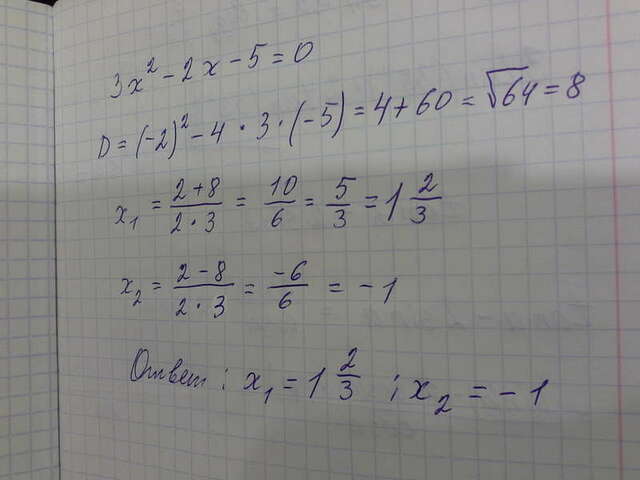 3x² - 2x - 5 = 0
D = (-2)² - 4 · 3 · (-5) = 4 + 60 = √64 = 8
x₁ = (2+8)/(2·3) = 10/6 = 5/3 = 1 2/3
x₂ = (2-8)/(2·3) = -6/6 = -1
Ответ: x₁ = 1 2/3 ; x₂ = -1